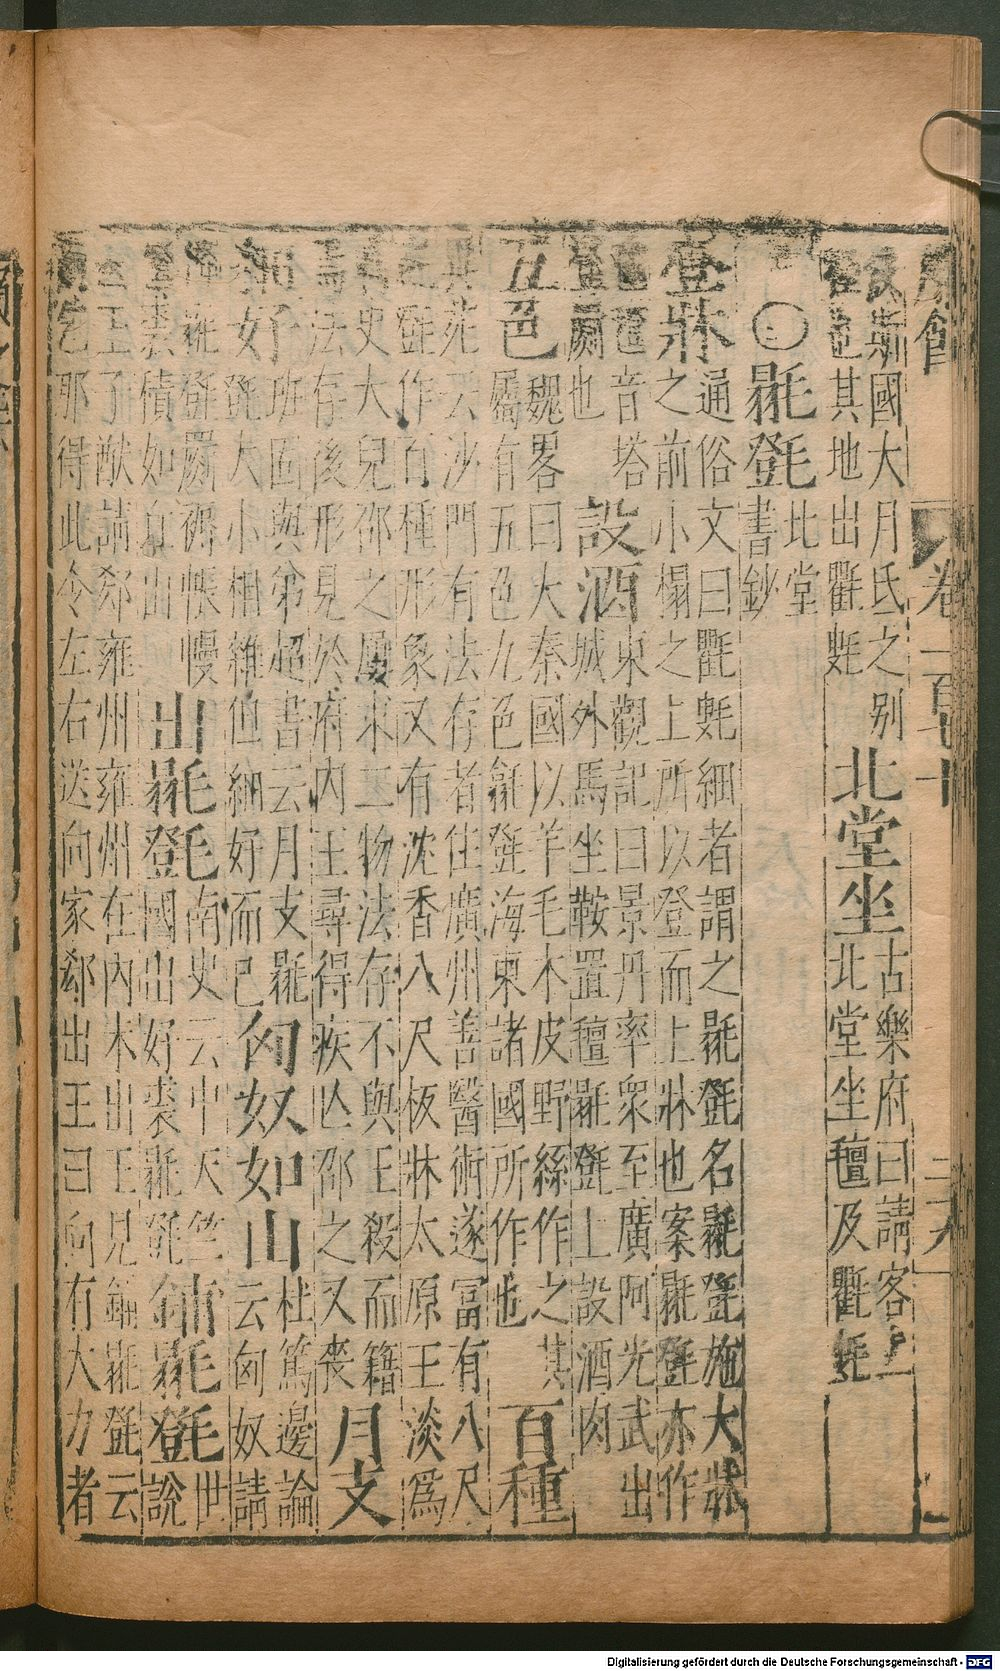 卷一百七十
波斯國大月氏之别
種也其地出氍毹
北堂坐
古樂府曰請客上
北堂坐氊及氍毹
○毾㲪
北堂
書鈔
登牀
通俗文曰氍毹細者謂之毾㲪名毾㲪施大牀
之前小榻之上所以登而上牀也案毾㲪亦作
音塔
也
設酒
東觀記曰景丹率衆至廣阿光武出
城外馬坐鞍置氊毾㲪上設酒肉
五色
魏畧曰大秦國以羊毛木皮野絲作之其
屬有五色九色毾㲪海東諸國所作也
百種
異苑云沙門有法存者住廣州善醫術遂富有八尺
毾㲪作百種形象又有沈香八尺板牀太原王淡爲
刺史大兒邵之屢求二物法存不與王殺而籍
焉法存後形見於府内王尋得疾亾邵之又喪
月支
細好
班固與弟超書云月支毾
㲪大小相雜但細好而已
匈奴如山
杜篤邊論
云匈奴請
降毾㲪罽褥帳幔
氊裘積如丘山
出毾㲪
南史云中天竺
國出好裘毾㲪
鋪毾㲪
世
說
王了猷請郄雍州雍州在内未出王見鋪毾㲪云
阿乞那得此令左右送向家郄出王曰向有大力者
Digitalisierung gefördert durch die Deutsche Forschungsgemeinschaft - DFG